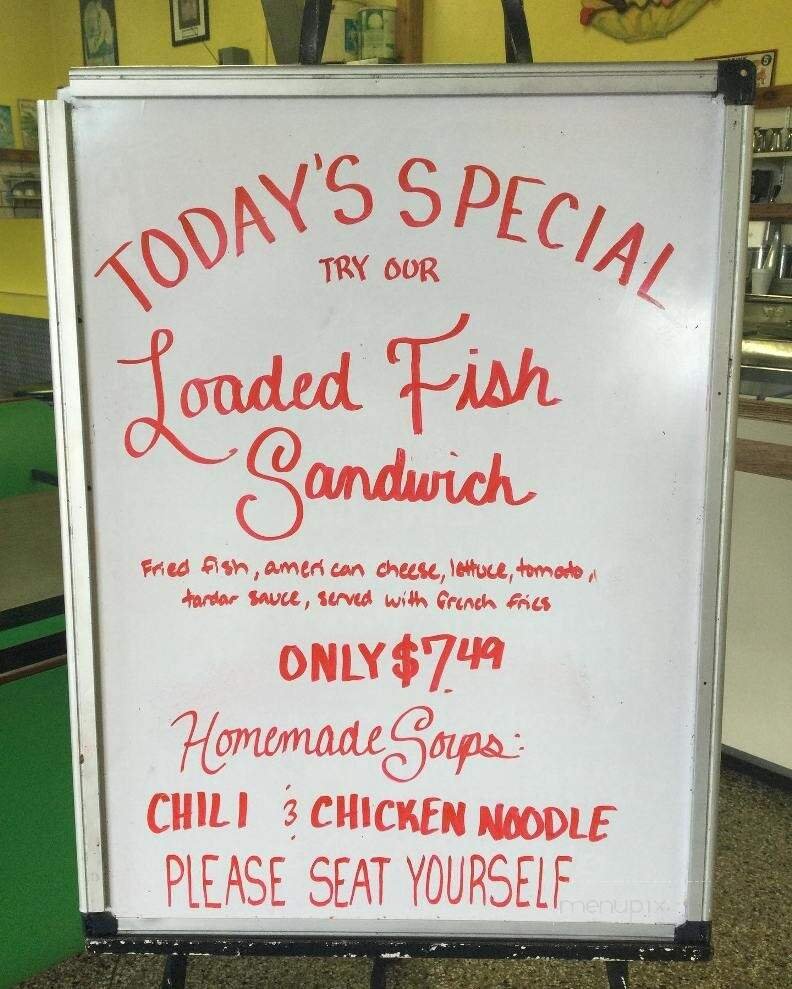 TODAY'S SPECIAL
TRY OUR
Loaded Fish
Sandwich
Fried fish, american cheese, lettuce, tomato,
tardar sauce, served with french fries
ONLY $7.49
Homemade Soups:
CHILI & CHICKEN NOODLE
PLEASE SEAT YOURSELF
menupix